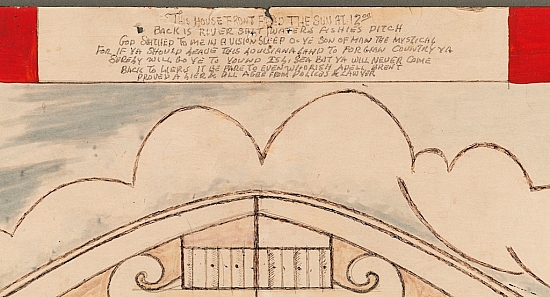 THIS HOUSE FRONT THE SUN AT 12
BACK IS RIVER SALT WATERS FISHIES DITCH
GOD SAITHED TO ME IN A VISION SLEEP O-YE SON OF MAN THE MYSTICAL
FOR IF YA SHOULD LEAVE THIS LOUISIANA LAND TO FORGIAN COUNTRY YA
SURELY WILL GO YE TO YOUND ISL, SEA BUT YA WILL NEVER COME
BACK TO IT BE TO EVEN
PROVED A LIER & ALL AGRE FROM POLICOS & LAWYER